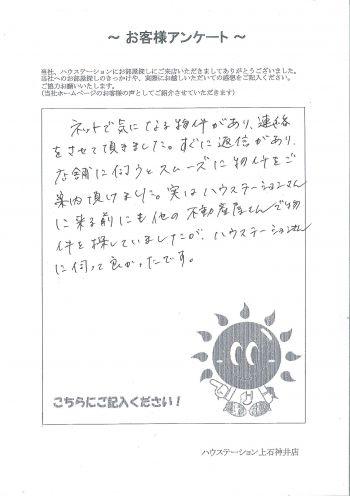 ～ お客様アンケート ～
当社、ハウステーションにお部屋探しにご来店いただきましてありがとうございました。
当社へのお部屋探しのきっかけや、実際にお越しいただいての感想をご記入ください。
ご協力お願いいたします。
(当社ホームページのお客様の声としてご紹介させていただきます)
ネットで気になる物件があり、連絡
をさせて頂きました。すぐに返信があり、
店舗に伺うとスムーズに物件をご
案内頂けました。実はハウステーションさん
に来る前にも他の不動産屋さんで物
件を探していましたが、ハウステーションさん
に伺って良かったです。
こちらにご記入ください!
ハウステーション上石神井店